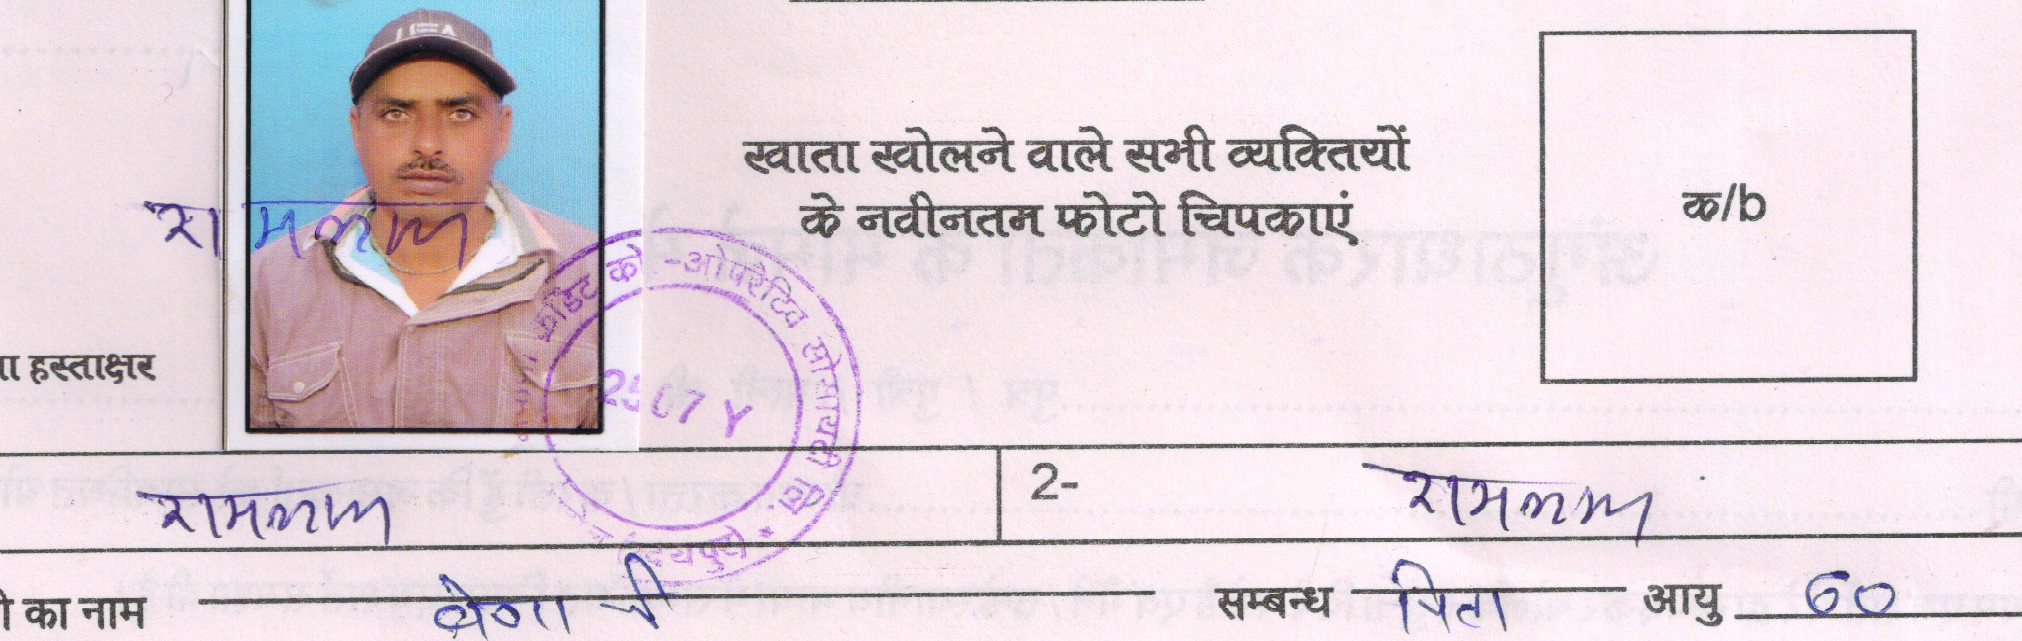 खाता खोलने वाले सभी व्यक्तियों
के नवीनतम फोटो चिपकाएं
क/b
रामलाल
क्रेडिट को-ओपरेटिव सोसायटी लि.
(उदयपुर) *
2507
हस्ताक्षर
रामलाल
2-
रामलाल
का नाम
सम्बन्ध पिता आयु 60